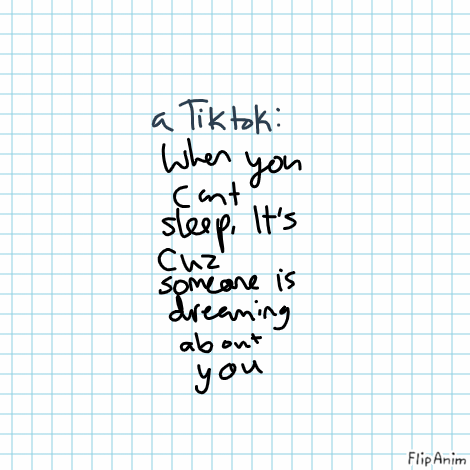 a Tiktok:
When you
cant
sleep, It's
Cuz
someone is
dreaming
about
you
FlipAnim